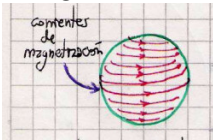 corrientes
de
magnetización